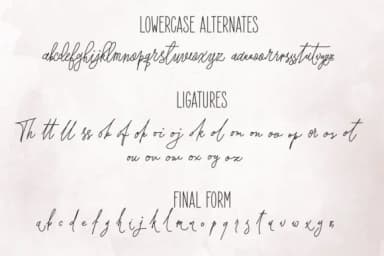 LOWERCASE ALTERNATES
abcdefghijklmnopqrstuvwxyz
LIGATURES
Th tt ll ss ob of ok oi oj ok ol om on oo op or os ot
ou ov ow ox oy oz
FINAL FORM
a b c d e f g h i j k l m n o p q r s t u v w x y z